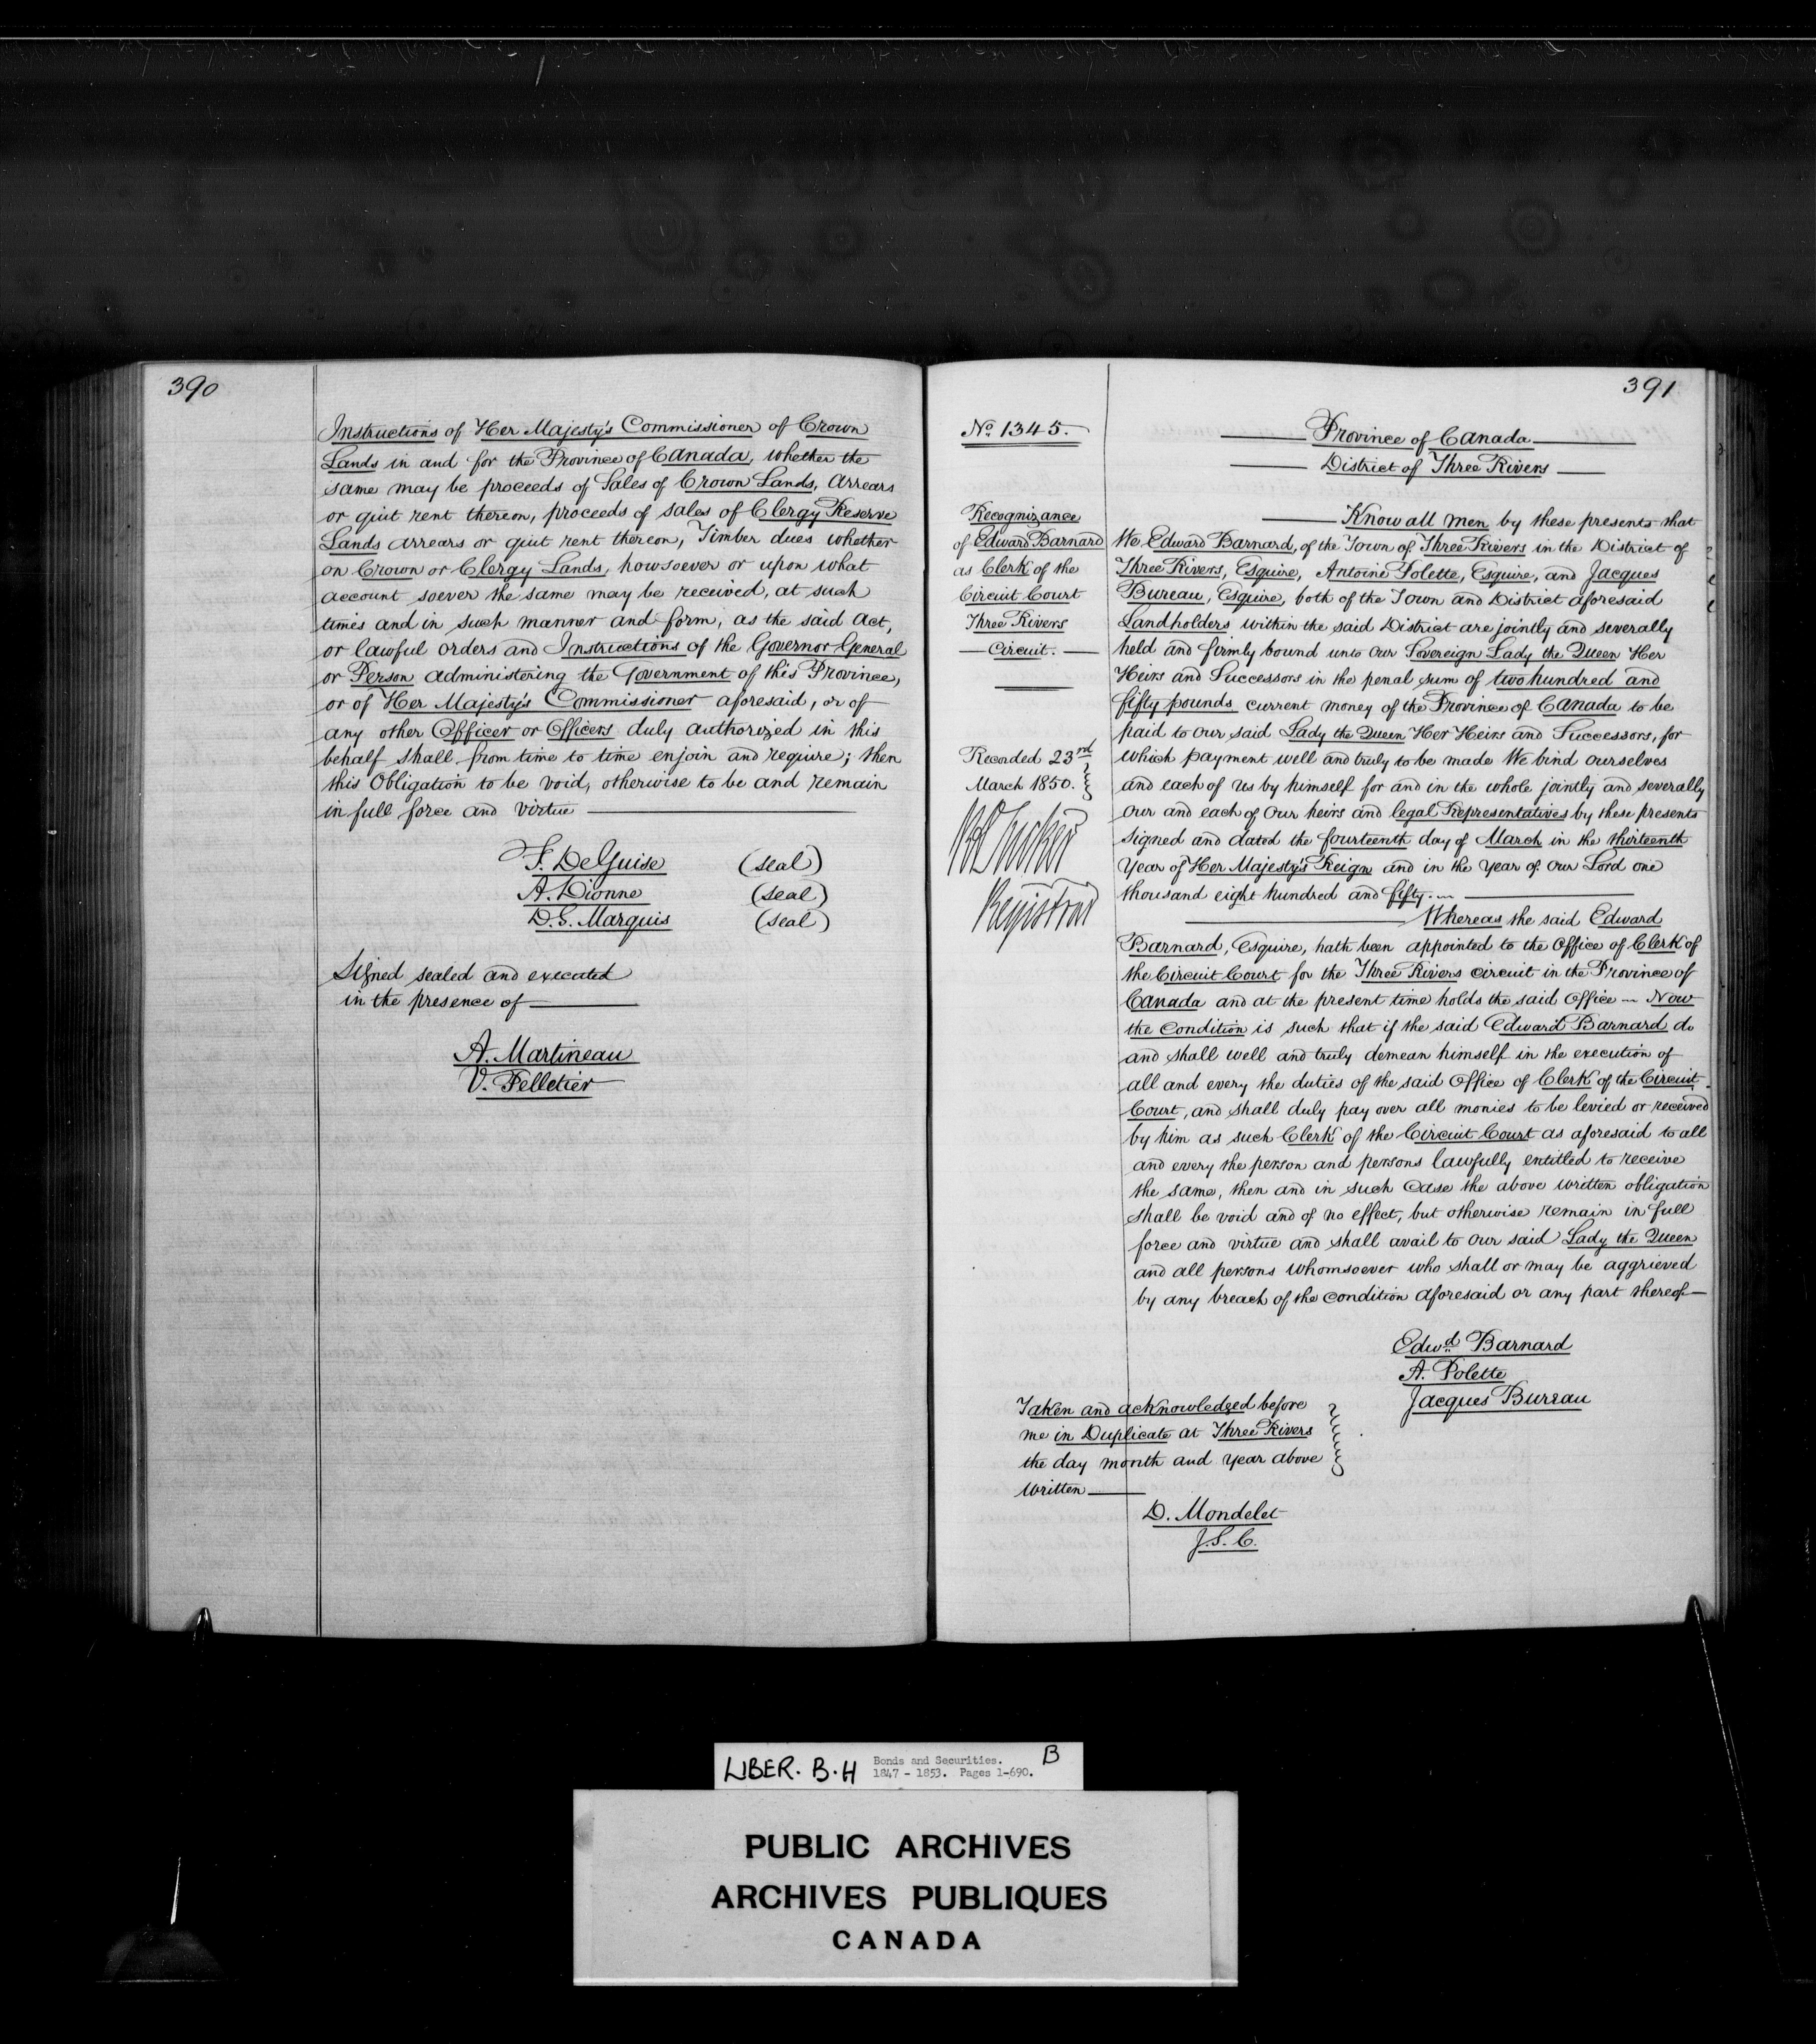 390
Instructions of Her Majesty's Commissioner of Crown
Lands in and for the Province of Canada, whether the
same may be proceeds of Sales of Crown Lands, Arrears
or quit rent thereon, proceeds of sales of Clergy Reserve
Lands arrears or quit rent thereon, Timber dues whether
on Crown or Clergy Lands, howsoever or upon what
account soever the same may be received, at such
times and in such manner and form, as the said Act,
or lawful orders and Instructions of the Governor General
or Person administering the Government of this Province,
or of Her Majesty's Commissioner aforesaid, or of
any other Officer or Officers duly authorized in this
behalf shall from time to time enjoin and require; then
this Obligation to be void, otherwise to be and remain
in full force and virtue
F. DeGuise (seal)
A. Dionne (seal)
D.G. Marquis (seal)
Signed sealed and executed
in the presence of
A. Martineau
V. Pelletier
391
No. 1345.
Recognizance
of Edward Barnard
as Clerk of the
Circuit Court
Three Rivers
Circuit.
Recorded 23rd
March 1850.
Registrar
Province of Canada
District of Three Rivers
Know all men by these presents that
We Edward Barnard, of the Town of Three Rivers in the District of
Three Rivers, Esquire, Antoine Polette, Esquire, and Jacques
Bureau, Esquire, both of the Town and District aforesaid
Landholders within the said District are jointly and severally
held and firmly bound unto our Sovereign Lady the Queen Her
Heirs and Successors in the penal sum of two hundred and
fifty pounds current money of the Province of Canada to be
paid to our said Lady the Queen Her Heirs and Successors, for
which payment well and truly to be made We bind ourselves
and each of us by himself for and in the whole jointly and severally
our and each of our heirs and legal Representatives by these presents
signed and dated the fourteenth day of March in the thirteenth
Year of Her Majesty's Reign and in the Year of our Lord one
thousand eight hundred and fifty.
Whereas the said Edward
Barnard, Esquire, hath been appointed to the Office of Clerk of
the Circuit Court for the Three Rivers circuit in the Province of
Canada and at the present time holds the said Office — Now
the Condition is such that if the said Edward Barnard do
and shall well and truly demean himself in the execution of
all and every the duties of the said Office of Clerk of the Circuit
Court, and shall duly pay over all monies to be levied or received
by him as such Clerk of the Circuit Court as aforesaid to all
and every the person and persons lawfully entitled to receive
the same, then and in such Case the above written obligation
shall be void and of no effect, but otherwise remain in full
force and virtue and shall avail to our said Lady the Queen
and all persons whomsoever who shall or may be aggrieved
by any breach of the condition aforesaid or any part thereof—
Edwd. Barnard
A. Polette
Jacques Bureau
Taken and acknowledged before
me in Duplicate at Three Rivers
the day month and year above
written
D. Mondelet
J.S.C.
LIBER. B.H Bonds and Securities. B
1847 - 1853. Pages 1-690.
PUBLIC ARCHIVES
ARCHIVES PUBLIQUES
CANADA